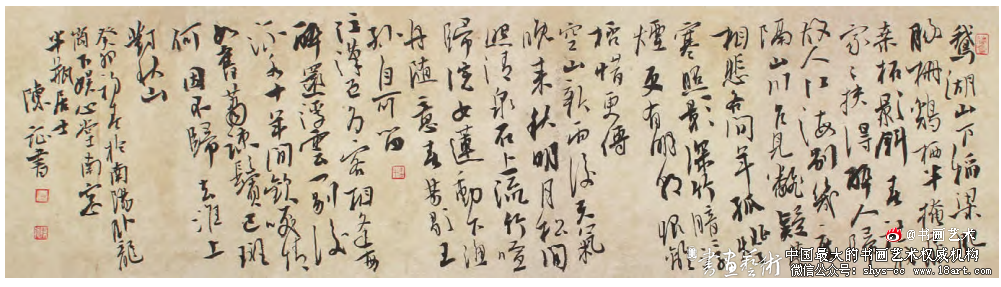 鵝湖山下稻梁肥
豚栅鷄栖半掩扉
桑柘影斜春社
家々扶得醉人歸
故人江海别幾度
隔山川乍見翻疑
相悲各問年孤
寒照影深竹暗
煙更有明朝恨離
杯惜共傳
空山新雨後天氣
晚来秋明月松間
照清泉石上流竹喧
歸浣女蓮動下漁
舟随意春芳歇王
孫自可留
江漢曾为客相逢每
醉還浮雲一别後
流水十年間歡笑情
如舊蕭疎鬢已斑
何因不歸去淮上
對秋山
癸卯初冬於南陽卧龍
崗下娱心堂南窗
半瓶居士
陳証書
@书画艺术
書画藝術
中国最大的书画艺术权威机构
微信公众号：shys-cc www.18art.com